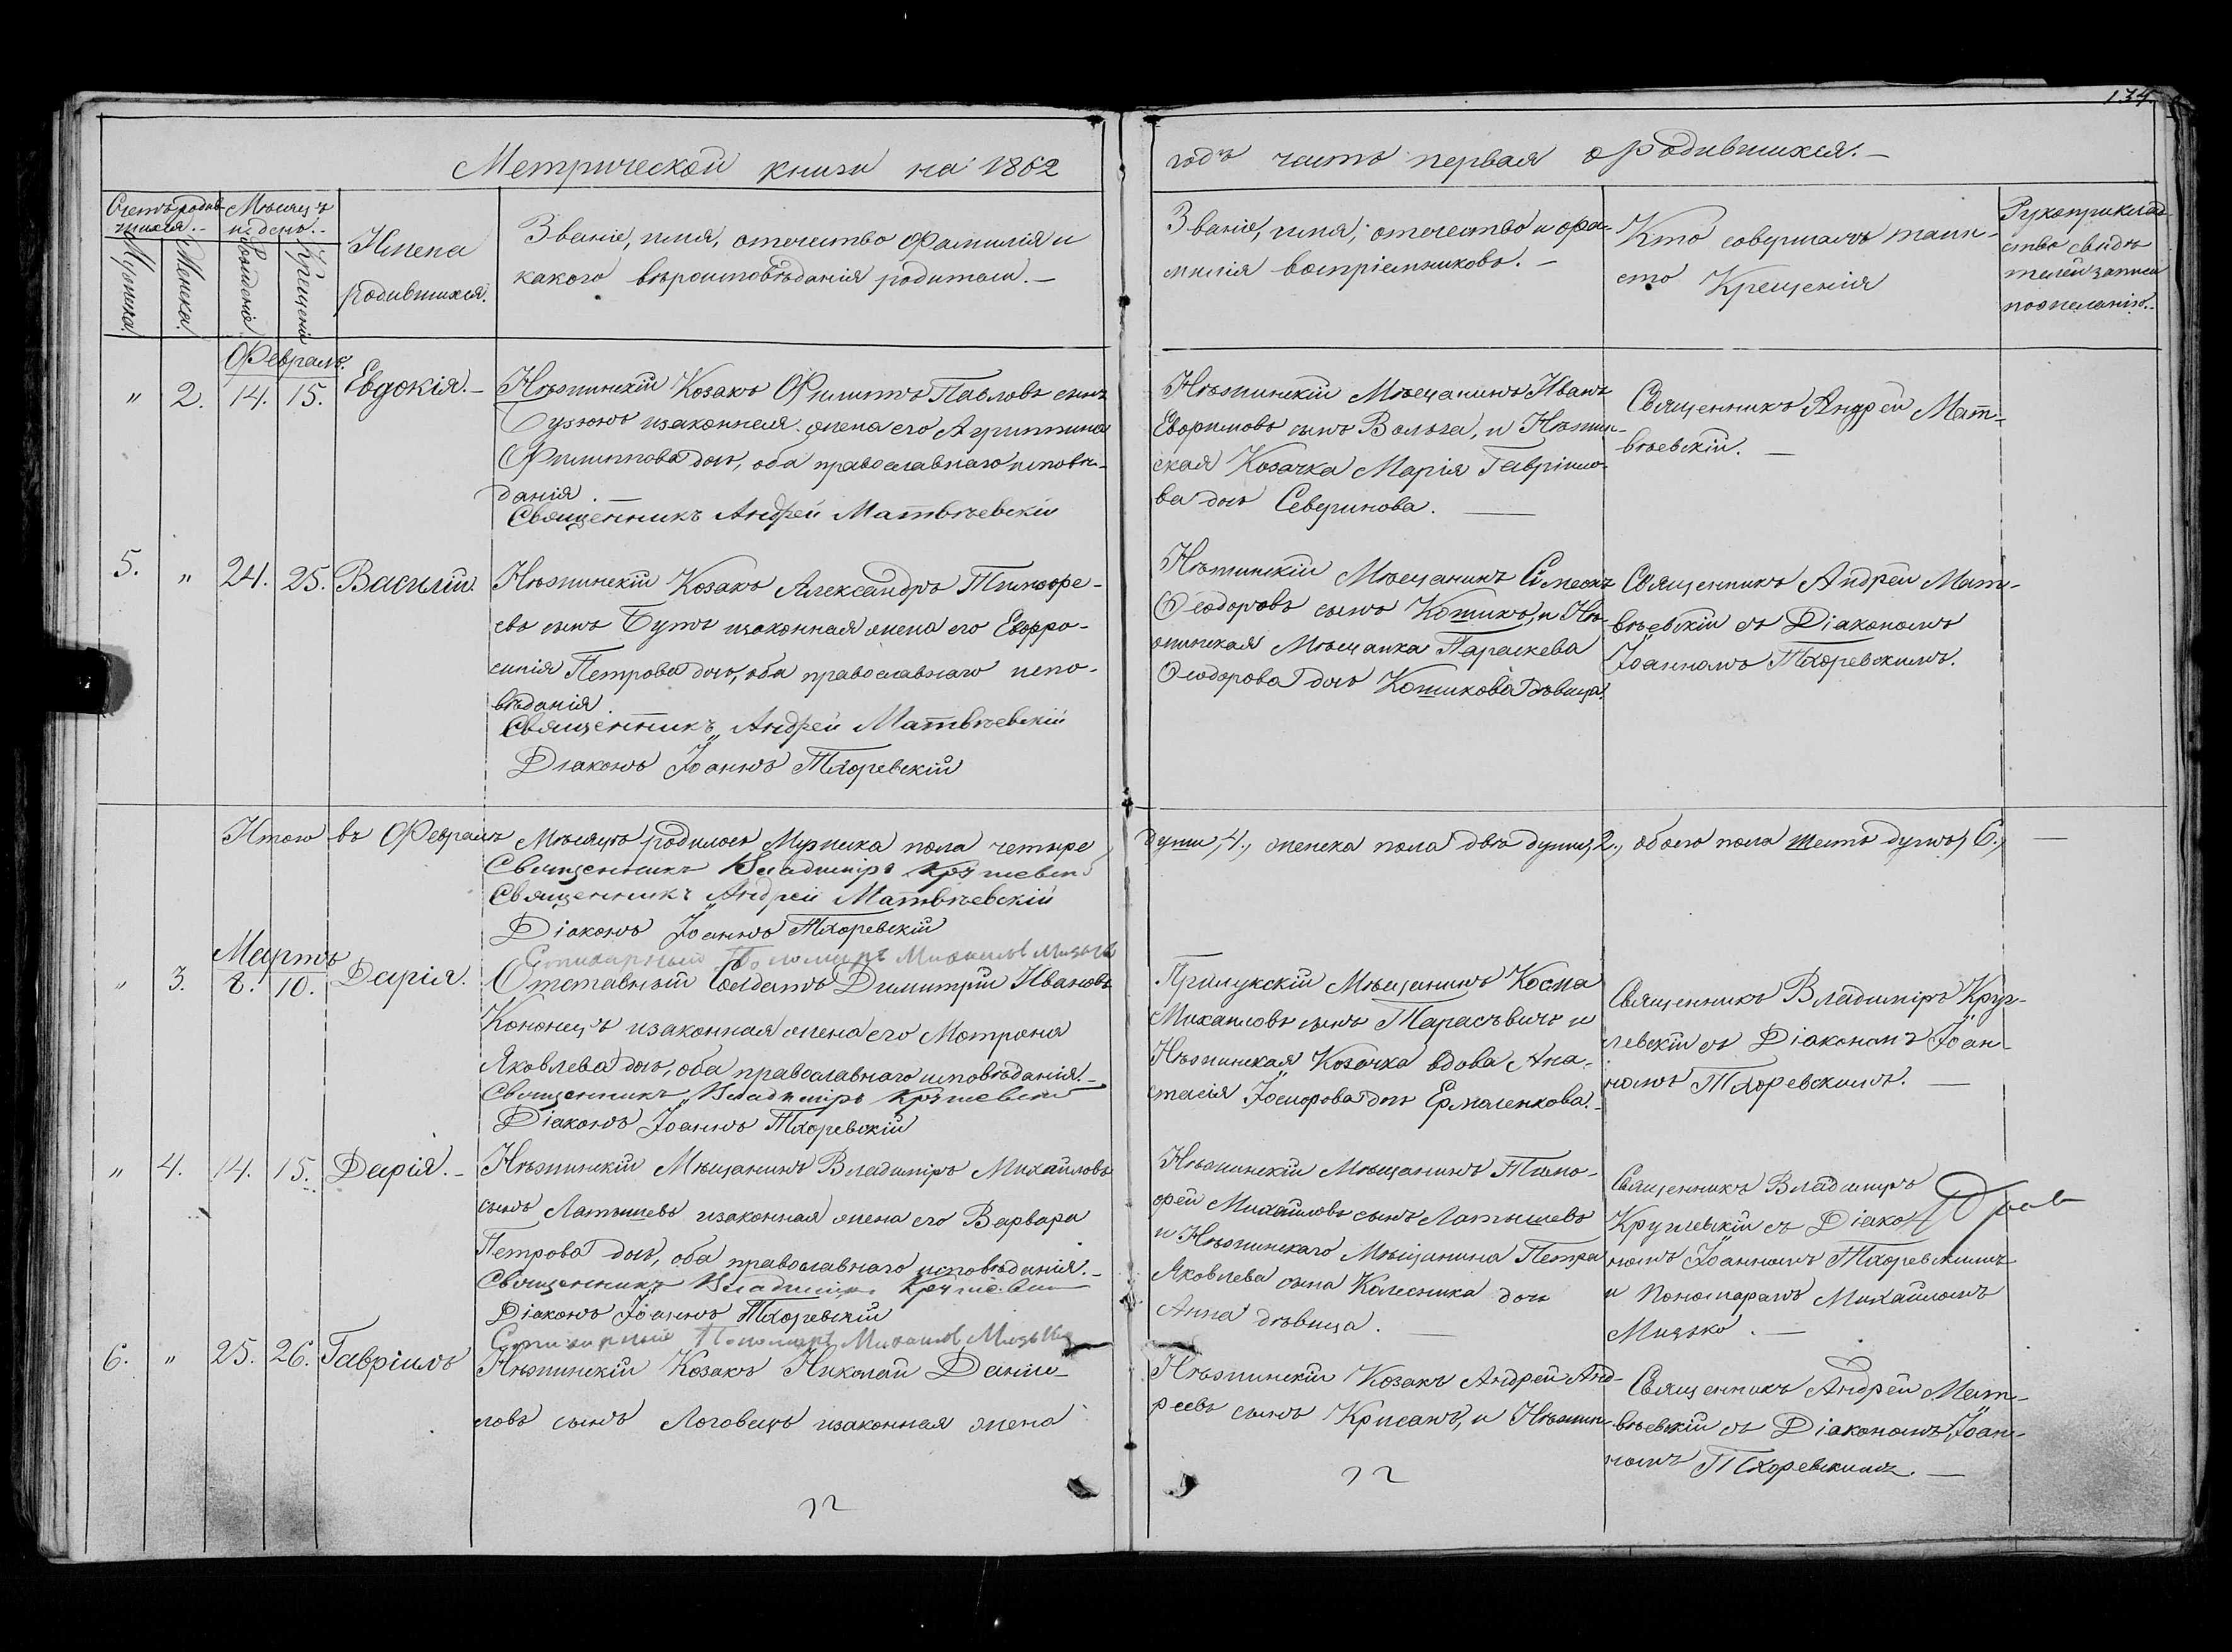 134.
Метрической книги на 1862
годъ часть первая о родившихся. —
Счетъ родив-
шихся.
Мужска
Женска.
Мѣсяцъ
и день.
Рожденія
Крещенія
Имена
родившихся.
Званіе, имя, отечество фамилія и
какого вѣроисповѣданія родители. —
Званіе, имя, отечество и фа-
милія воспріемниковъ. —
Кто совершалъ таин-
ство Крещенія
Рукоприклад-
ство свидѣ
телей записи
по желанію.
Февраль.
" 2. 14. 15. Евдокія. —
Нѣжинскій Козакъ Филиппъ Павловъ сынъ
изаконная жена его Агриппина
Филиппова дочь, оба православнаго исповѣ-
данія. —
Священникъ Андрей Матвѣевскій
Нѣжинскій Мѣщанинъ Иванъ
Ефремовъ сынъ Вольга, и Нѣжин-
ская Козачка Марія Гавріило-
ва дочь Северинова. —
Священникъ Андрей Мат-
вѣевскій. —
5. " 24. 25. Василій.
Нѣжинскій Козакъ Александръ Тимофе-
евъ сынъ Бутъ изаконная жена его Евфро-
синія Петрова дочь, оба православнаго испо-
вѣданія.
Священникъ Андрей Матвѣевскій
Діаконъ Іоаннъ Тхоревскій
Нѣжинскій Мѣщанинъ Симеонъ
Ѳеодоровъ сынъ Котикъ, и Нѣ-
жинская Мѣщанка Параскева
Ѳеодорова дочь Котикова дѣвица.
Священникъ Андрей Мат-
вѣевскій съ Діакономъ
Іоанномъ Тхоревскимъ.
Итого въ Февралѣ Мѣсяцѣ родилось Мужска пола четыре
души, 4, женска пола двѣ души, 2, обоего пола шесть душъ, 6, —
Священникъ Владиміръ Кружевскій
Священникъ Андрей Матвѣевскій
Діаконъ Іоаннъ Тхоревскій
Стихарный Пономарь Михаилъ Мизько
Мартъ
" 3. 8. 10. Дарія.
Отставный Солдатъ Димитрій Ивановъ
Кононецъ изаконная жена его Мотрона
Яковлева дочь, оба православнаго исповѣданія. —
Священникъ Владиміръ Кружевскій
Діаконъ Іоаннъ Тхоревскій
Прилукскій Мѣщанинъ Косма
Михаиловъ сынъ Тарасѣвичъ и
Нѣжинская Козачка вдова Ана-
стасія Іосифова дочь Ермоленкова. —
Священникъ Владиміръ Круж-
левскій съ Діакономъ Іоан-
номъ Тхоревскимъ. —
" 4. 14. 15. Дарія. —
Нѣжинскій Мѣщанинъ Владиміръ Михайловъ
сынъ Латышевъ изаконная жена его Варвара
Петрова дочь, оба православнаго исповѣданія. —
Священникъ Владиміръ Кружевскій
Діаконъ Іоаннъ Тхоревскій
Стихарный Пономарь Михаилъ Мизько
Нѣжинскій Мѣщанинъ Тимо-
фей Михайловъ сынъ Латышевъ
и Нѣжинскаго Мѣщанина Петра
Яковлева сына Колесника дочь
Анна дѣвица. —
Священникъ Владиміръ
Кружевскій съ Діако-
номъ Іоанномъ Тхоревскимъ
и Пономаремъ Михайломъ
Мизько. —
6. " 25. 26. Гавріилъ
Нѣжинскій Козакъ Николай Дани-
ловъ сынъ Логовецъ изаконная жена
Нѣжинскій Козакъ Андрей Анд-
реевъ сынъ Крисанъ, и Нѣжин-
Священникъ Андрей Мат-
вѣевскій съ Діакономъ Іоан-
номъ Тхоревскимъ. —